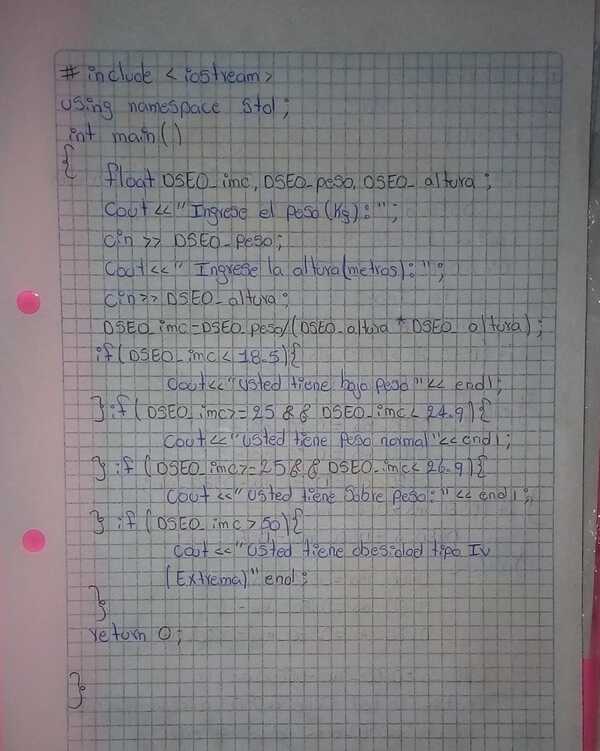 # include < iostream >
using namespace std;
int main()
{
float DSEO_imc, DSEO_peso, DSEO_altura;
Cout << "Ingrese el peso (Kg): ";
cin >> DSEO_peso;
Cout << " Ingrese la altura (metros): ";
cin >> DSEO_altura;
DSEO_imc = DSEO_peso/(DSEO_altura * DSEO_altura);
if (DSEO_imc < 18.5){
cout << "Usted tiene bajo peso" << endl;
} if (DSEO_imc >= 25 && DSEO_imc < 24.9){
Cout << "Usted tiene peso normal" << endl;
} if (DSEO_imc >= 25 && DSEO_imc < 26.9){
Cout << "Usted tiene Sobre peso: " << endl;
} if (DSEO_imc > 50){
cout << "Usted tiene obesidad tipo IV
(Extrema)" endl;
}
return 0;
}